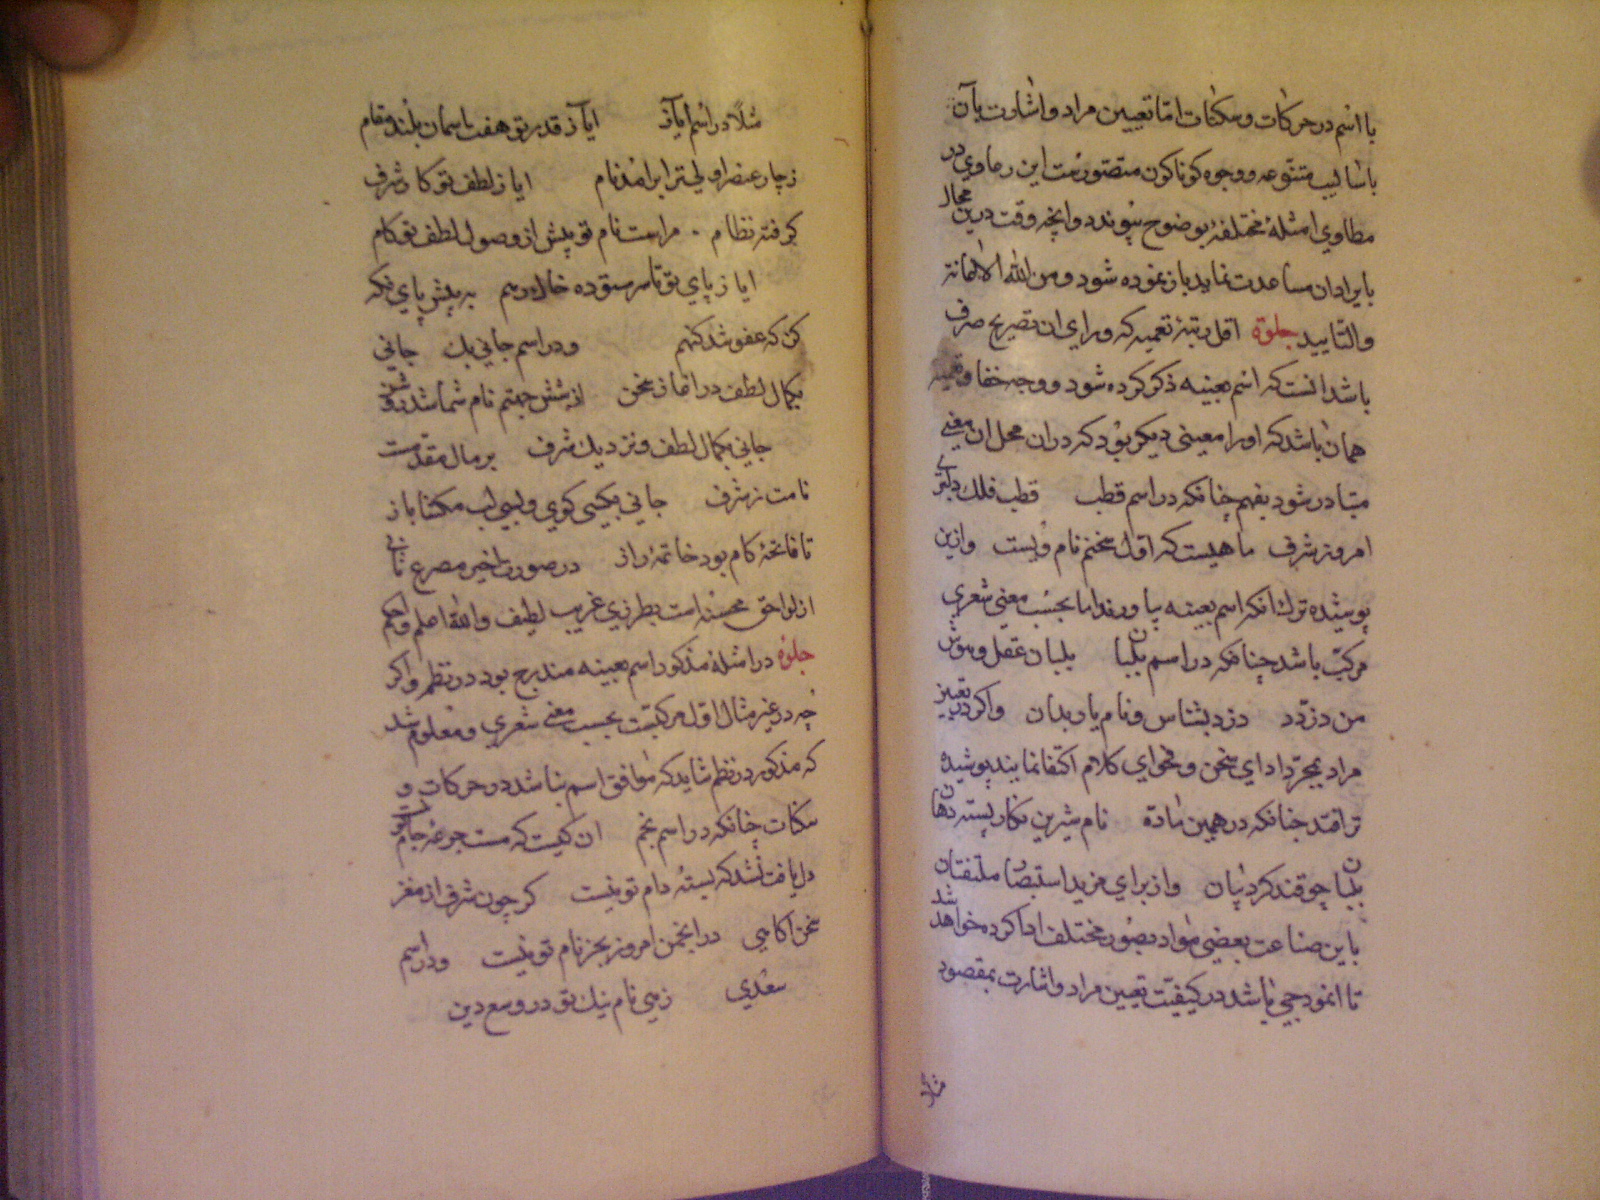 با اسم در حرکات و سکنات اما تعیین مراد و اشارت بآن
باسالیب متنوعه و وجوه کوناکون متصورست این رهاوی در
مطاوی امثلهٔ مختلفه بوضوح پیوندد وانچه وقت درین مجال
بایراد ان مساعدت نماید باز نموده شود ومن الله الاعانة
والتایید جلوة اقل رتبهٔ تعمیه که ورای ان تصریح صرف
باشد انست که اسم بعینه ذکر کرده شود و وجه خفا وتعمیه
همان باشد که اورا معینی دیکر بود که دران محل ان معنی
متبادر شود بفهم چنانکه در اسم قطب قطب فلک دلبری
امروز شرف ماهیست که اول سخنم نام ویست وازین
پوشیده تر ک انکه اسم بعینه بیاورند اما بحسب معنی شعری
مرکب باشد چنانکه در اسم بلبان بلبان عقل وهوش
من دزدد دزد بشناس ونام یار بدان واکر در تعیین
مراد بمجرد ادای سخن وفحوای کلام اکتفا نمایند پوشیده
تر افتد چنانکه در همین ماده نام شیرین نکار پسته دهان
بلبان چو قند کرد بیان واز برای مزید استبصار ملتفتان
باین صناعت بعضی مواد بصور مختلف ادا کرده خواهد شد
تا انموذجی باشد در کیفیت تعیین مراد واشارت بمقصود
مثلا
مثلاً در اسم ایاز ایاز قدر تو هفت اسمان بلند مقام
ز چار عنصر اولی ترا برامد نام ایاز لطف تو کار شرف
کرفته نظام مراست نام تو پیش از وصول لطف تو کام
ایاز پای تو تا سر ستوده خال ورسم به پیش پای نکه
کن که عفو شد کنهم ودر اسم جانی بک جانی
بکمال لطف در اغاز سخن از شش جهتم نام شما شد روشن
جانی بکمال لطف ونزدیک شرف بر مال مقدمست
نامت ز شرف جانی بیکسی کوی وببی لب مکشا باز
تا فاتحهٔ کام بود خاتمهٔ راز در صورت اخیر مصرع ثانی
از لواحق محسنه است بطرزی غریب لطیف والله اعلم واحکم
جلوه در امثلهٔ مذکور اسم بعینه مندرج بود در نظم واکر
چه در غیر مثال اول مرکبست بحسب معنی شعری ومعلوم شد
که مذکور در نظم شاید که موافق اسم نباشد در حرکات و
سکنات چنانکه در اسم نجم ان کیست که مست جرعه جام تو نیست
دل یافت نشد که بستهٔ دام تو نیست کر چون شرف از مغز
سخن اکاهی در انجمن امروز بجز نام تو نیست ودر اسم
سعدی زهی نام نیک تو در وسع دین